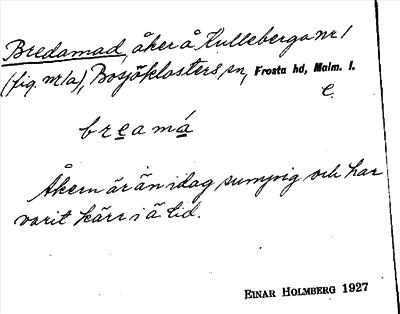 Bredamad, åker å Kulleberga nr 1
(fig. nr 1a), Bosjöklosters sn, Frosta hd, Malm. l.
e.
breamá
Åkern är än idag sumpig och har
varit kärr i ä tid.
EINAR HOLMBERG 1927